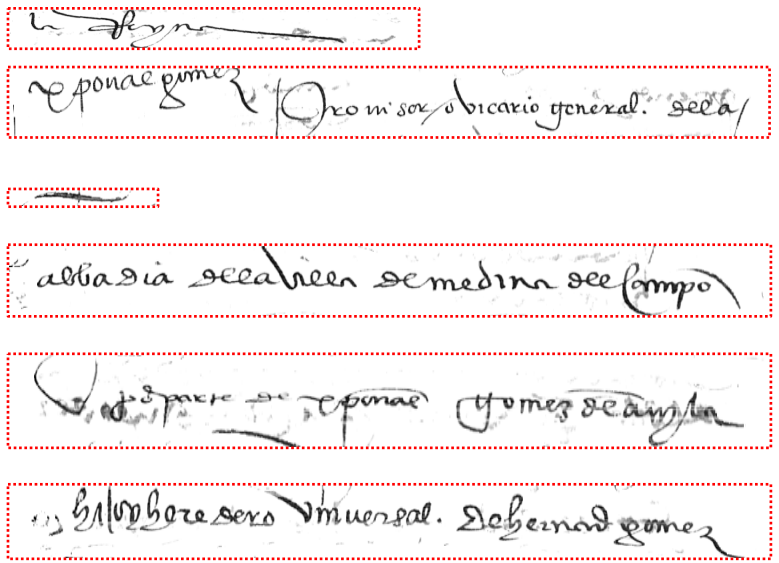 xpoual gomez Prouisor / o bicario general. dela /
abbadia dela villa de medina del Campo
por parte de xpoual gomez de auyla
hijo y heredero vniuersal. de hernando gomez